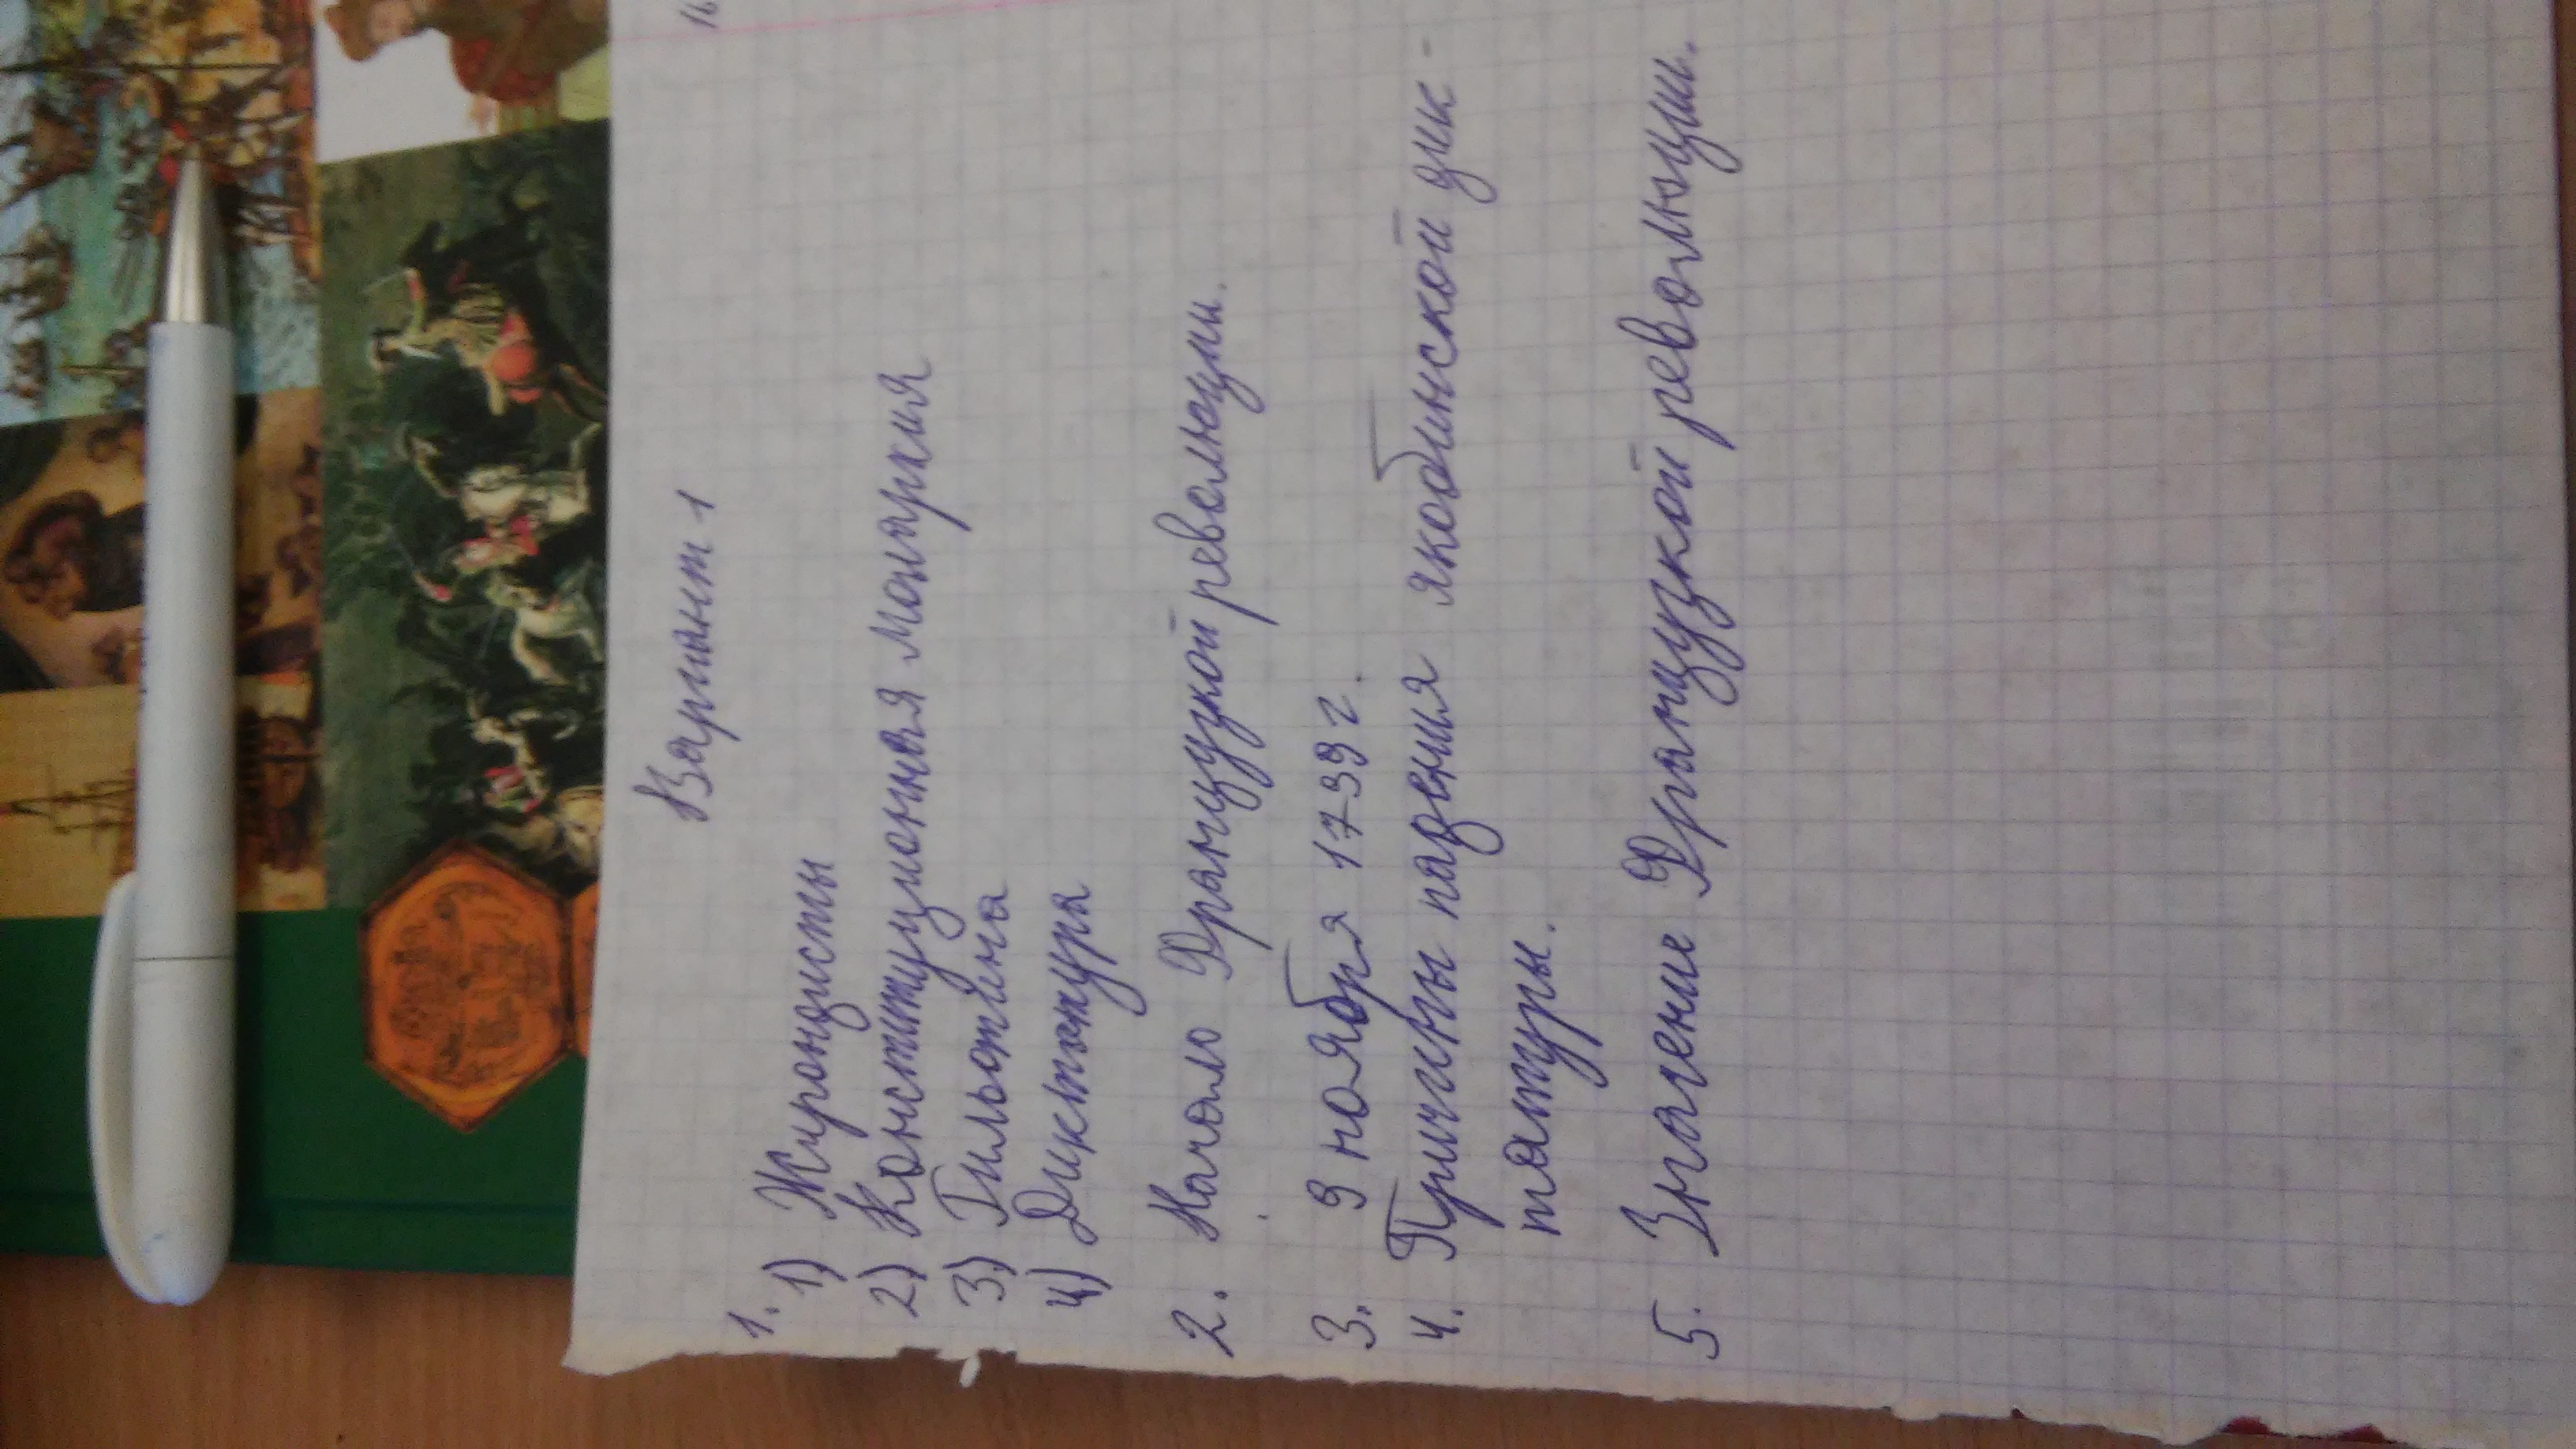 16
Вариант 1
1. 1) Жирондисты
2) Конституционная монархия
3) Гильотена
4) Диктатура
2. Начало Французкой революции.
3. 9 ноября 1799 г.
4. Причины падения якобинской дик-
татуры.
5. Значение Французкой революции.